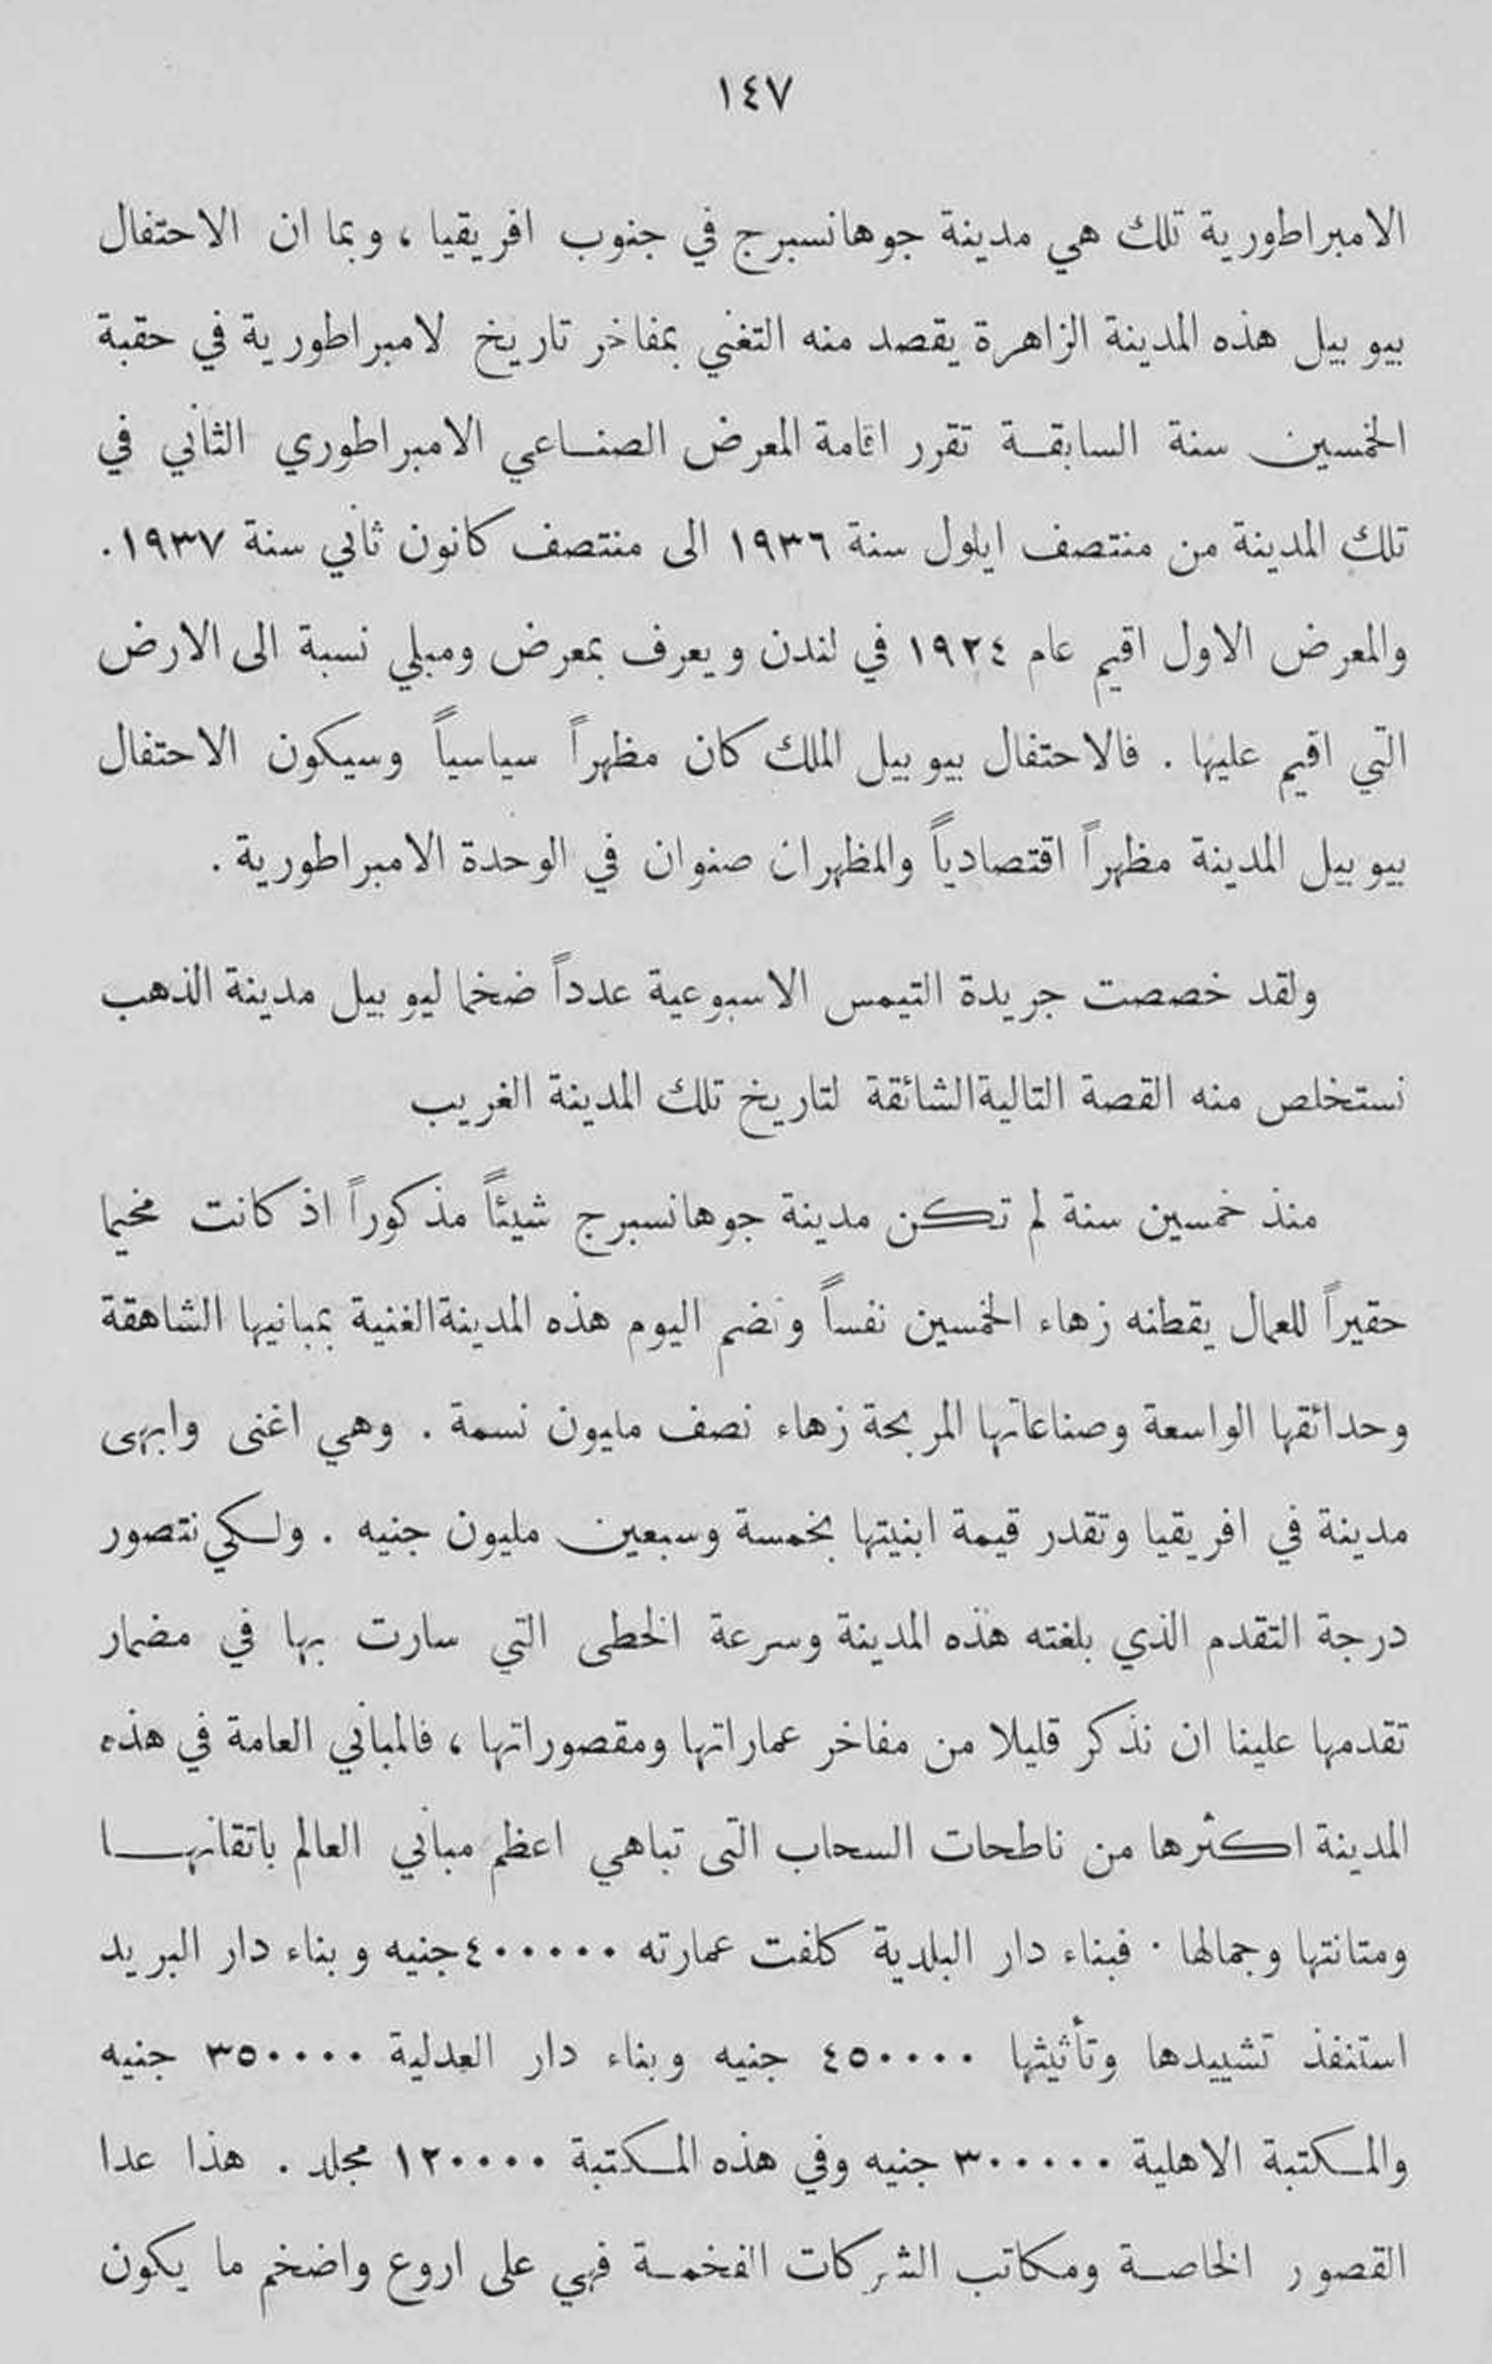 ١٤٧
الامبراطورية تلك هي مدينة جوهانسبرج في جنوب افريقيا ، وبما ان الاحتفال
بيوبيل هذه المدينة الزاهرة يقصد منه التغني بمفاخر تاريخ لامبراطورية في حقبة
الخمسين سنة السابقة تقرر اقامة المعرض الصناعي الامبراطوري الثاني في
تلك المدينة من منتصف ايلول سنة ١٩٣٦ الى منتصف كانون ثاني سنة ١٩٣٧.
والمعرض الاول اقيم عام ١٩٢٤ في لندن ويعرف بمعرض ومبلي نسبة الى الارض
التي اقيم عليها . فالاحتفال بيوبيل الملك كان مظهراً سياسياً وسيكون الاحتفال
بيوبيل المدينة مظهراً اقتصادياً والمظهران صنوان في الوحدة الامبراطورية .
ولقد خصصت جريدة التيمس الاسبوعية عدداً ضخما ليوبيل مدينة الذهب
نستخلص منه القصة التالية الشائقة لتاريخ تلك المدينة الغريب
منذ خمسين سنة لم تكن مدينة جوهانسبرج شيئاً مذكوراً اذ كانت مخيما
حقيراً للعمال يقطنه زهاء الخمسين نفساً وتضم اليوم هذه المدينة الغنية بمبانيها الشاهقة
وحدائقها الواسعة وصناعاتها المربحة زهاء نصف مليون نسمة . وهي اغنى وابهى
مدينة في افريقيا وتقدر قيمة ابنيتها بخمسة وسبعين مليون جنيه . ولكي نتصور
درجة التقدم الذي بلغته هذه المدينة وسرعة الخطى التي سارت بها في مضمار
تقدمها علينا ان نذكر قليلا من مفاخر عماراتها ومقصوراتها ، فالمباني العامة في هذه
المدينة اكثرها من ناطحات السحاب التى تباهي اعظم مباني العالم باتقانها
ومتانتها وجمالها . فبناء دار البلدية كلفت عمارته ٤٠٠٠٠٠ جنيه وبناء دار البريد
استنفذ تشييدها وتأثيثها ٤٥٠٠٠٠ جنيه وبناء دار العدلية ٣٥٠٠٠٠ جنيه
والمكتبة الاهلية ٣٠٠٠٠٠ جنيه وفي هذه المكتبة ١٢٠٠٠٠ مجلد . هذا عدا
القصور الخاصة ومكاتب الشركات الفخمة فهي على اروع واضخم ما يكون